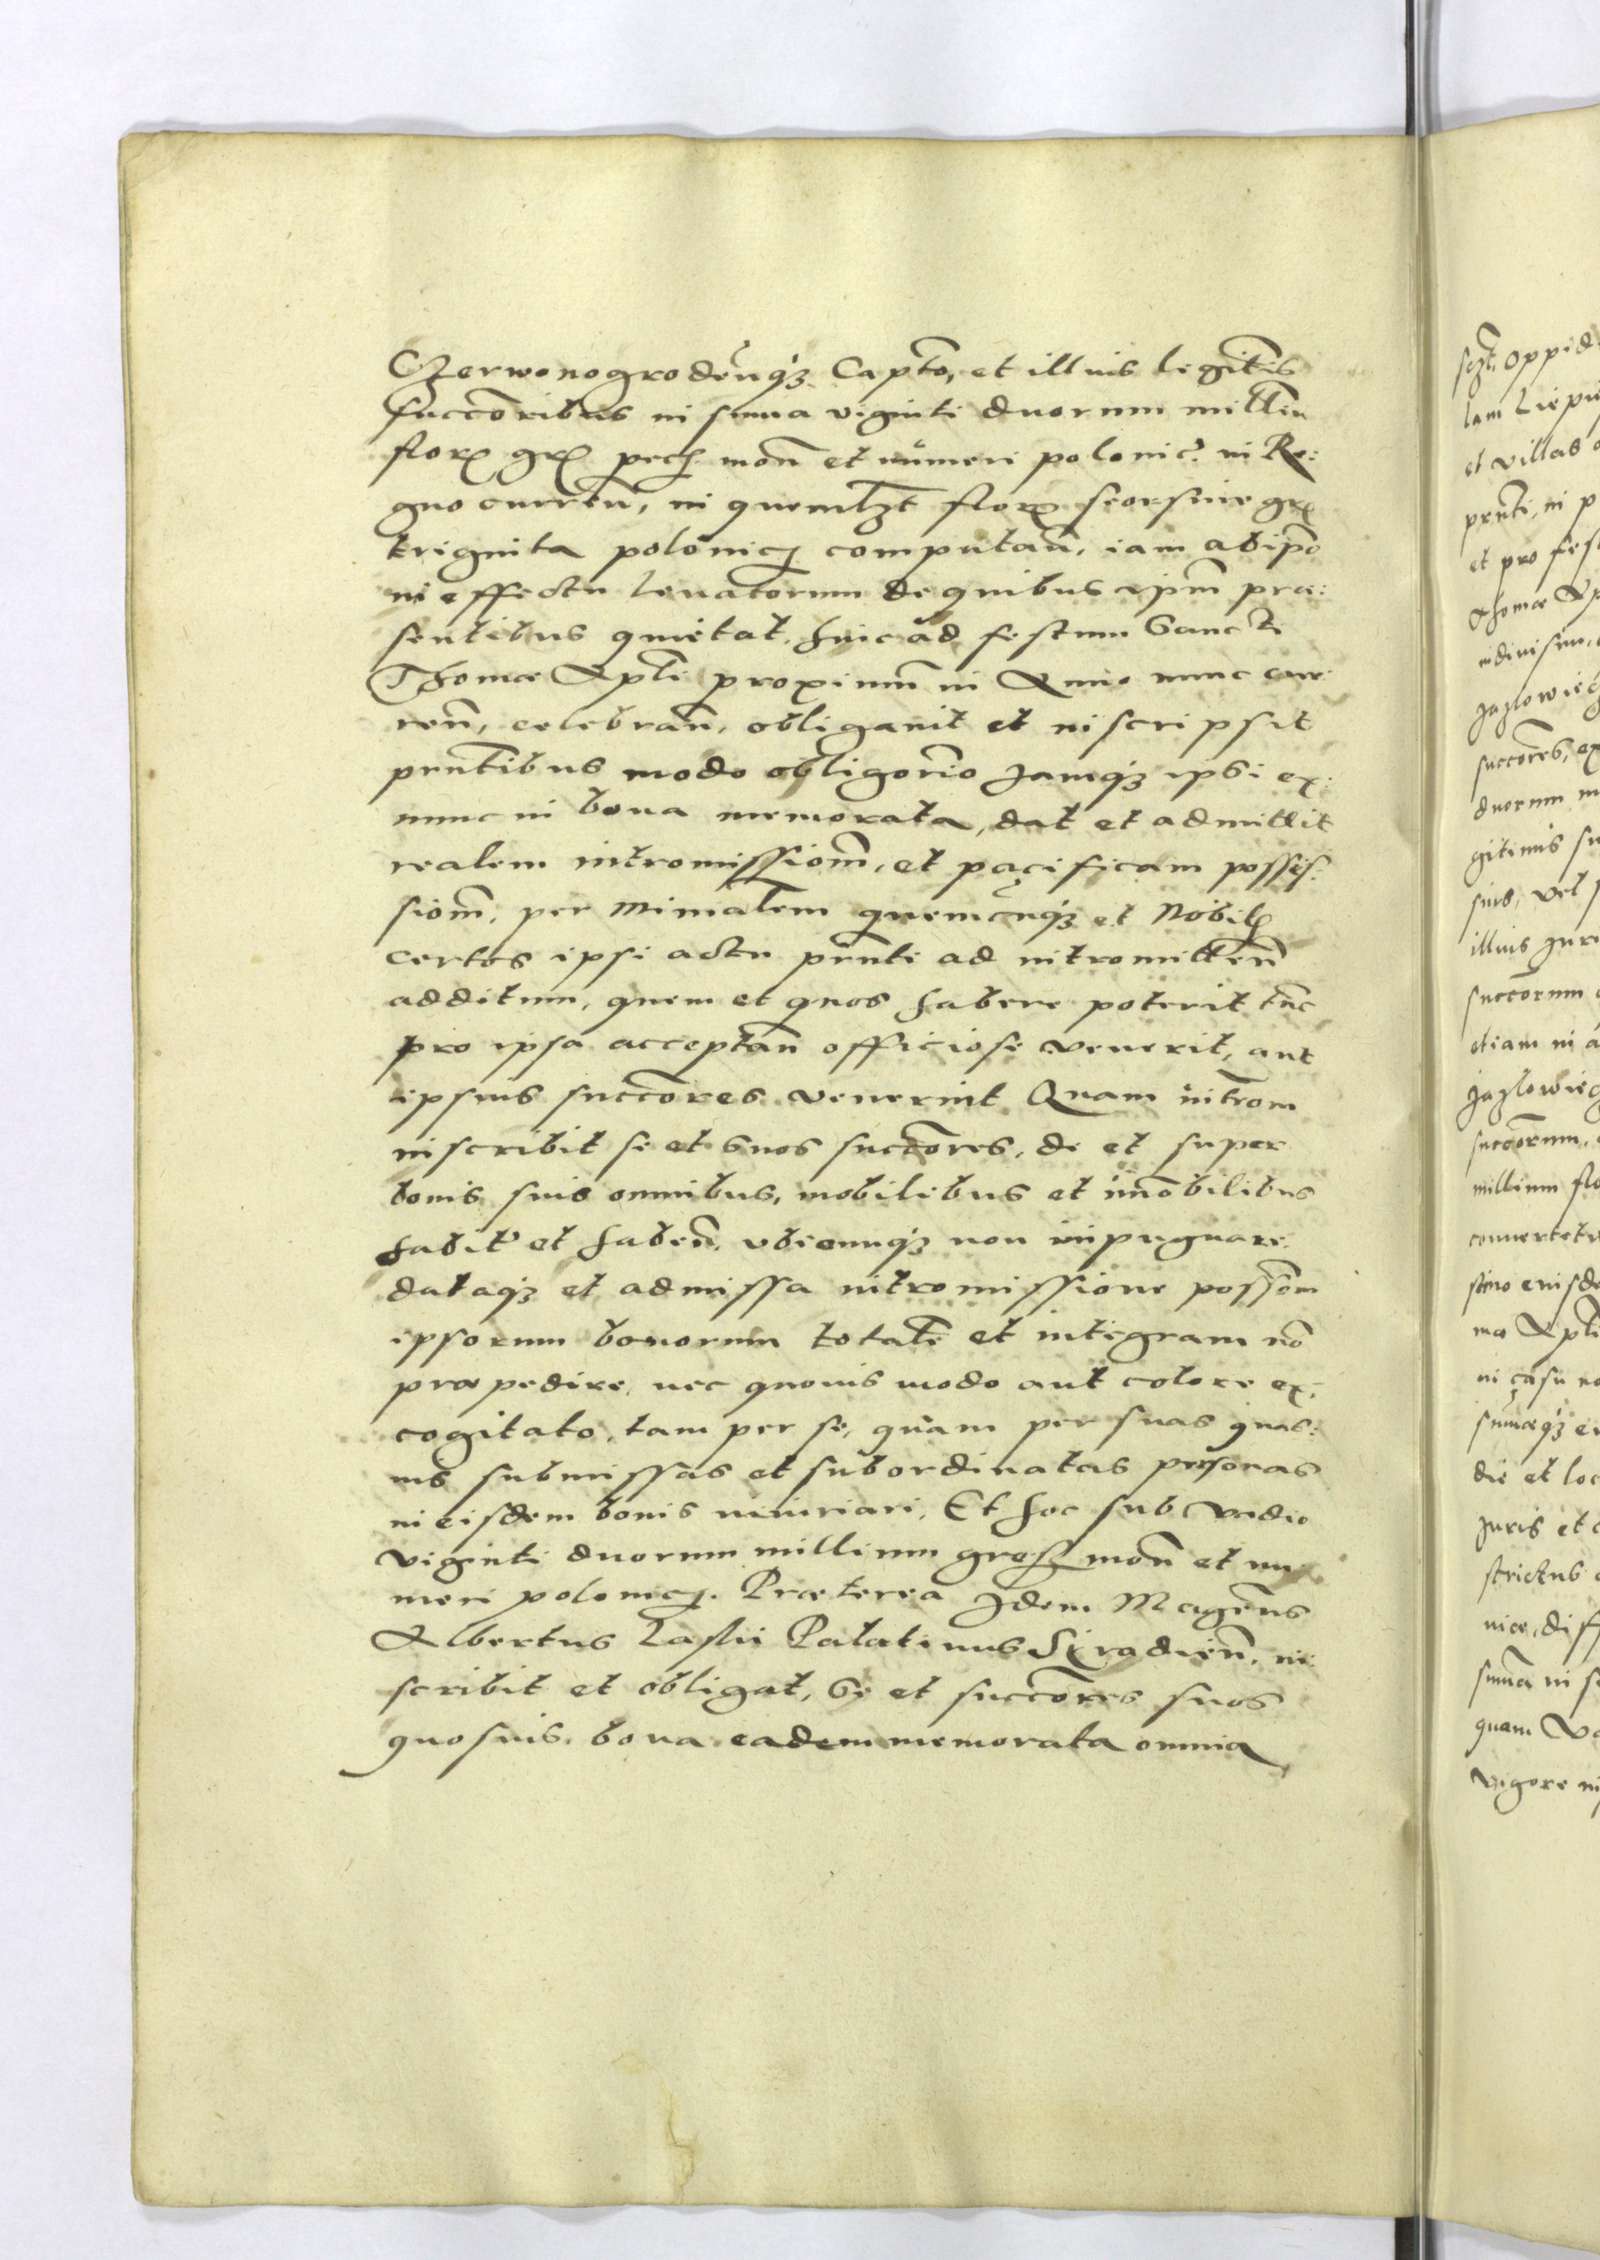 Czerwonogroden̄qȝ Capto, et illius legitīs
succōribus in suma viginti duorum milliu
flor grꝭ pecꝭ mon̄ et numeri polonicꝭ in Re:
gno curren̄, in quemlȝt flor seorsiue grꝭ
triginta polonicꝭ computan̄, iam ab ipō
in effectu leuatorum de quibus ipm̄ præ:
sentibus quietat, hinc ad festum Sancti
Thomæ Apli proximum in Anno nunc cur:
ren̄, celebran̄, obligauit et inscripsit
prntibus modo obligōrio Jamqȝ ipsi ex:
nunc in bona memorata, dat et admittit
realem intromissiom̄, et pacificam posses:
siom̄, per Mimalem quemcunqȝ et Nobilꝭ
certos ipsi actu prnti ad intromitten̄
additum, quem et quos habere poterit tuc
pro ipsa acceptan̄ officiose venerit, aut
ipsius succōres venerint Quam introm
inscribit se et suos succōres, de et super
bonis suis omnibus, mobilibus et imōbilibus
habit' et haben̄, vbicunqȝ non impugnare.
dataqȝ et admissa intromissione possom̄
ipsorum bonorum totalē et integram nō
præpedire, nec quouis modo aut colore ex:
cogitato, tam per se, quam per suas quas:
uis submissas et subordinatas personas
in eisdem bonis iniuriari, Et hoc sub vadio
viginti duorum millium gross mon̄ et nu
meri polonicꝭ. Præterea Jdem Magcūs
Albertus Laski Palatinus Siradien̄, in:
scribit et obligat, se et succōres suos
quosuis, bona eadem memorata omnia
scȝt, Oppid
lam Liepie
et villas
prnti, in p
et pro fes
Thomæ Ap
indiuisim,
Jazlowiecz
succōres, ex
duorum m
gitimis su
suis, vel
illius Juri
succōrum
etiam in a
Jazlowiecz
succōrum,
millium flo
conuertetu
stino eiusde
mæ Apli
in casu no
sumæqȝ e
die et loc
Juris et c
strictus
uice, dif
suma in s
quam Va
vigore in